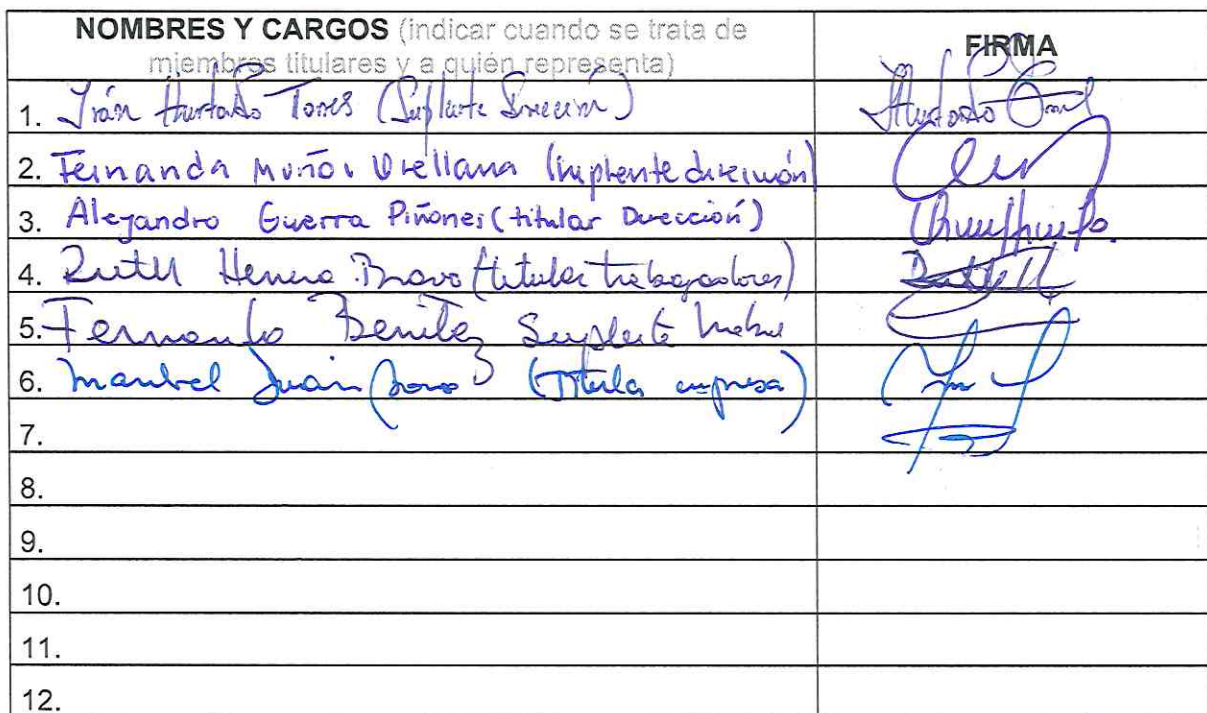 NOMBRES Y CARGOS (indicar cuando se trata de
miembros titulares y a quién representa)
FIRMA
1. Iván Hurtado Torres (Suplente Dirección)
2. Fernanda Muñoz Orellana (suplente dirección)
3. Alejandro Guerra Piñones (titular Dirección)
4. Ruth Herrera Bravo (titular trabajadores)
5. Fernando Benitez Suplente
6. Maribel Juan (Titular empresa)
7.
8.
9.
10.
11.
12.